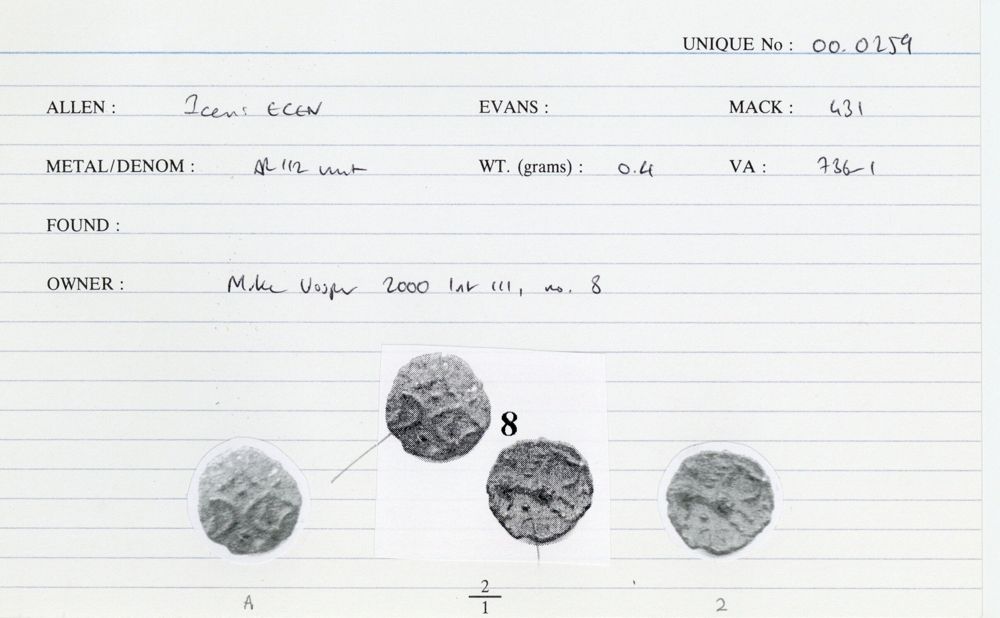 UNIQUE No : 00.0259
ALLEN : Iceni ECEN EVANS : MACK : 431
METAL/DENOM : AR 1/2 unit WT. (grams) : 0.4 VA : 736-1
FOUND :
OWNER : Mike Vosper 2000 Int III, no. 8
8
A 2/1 2